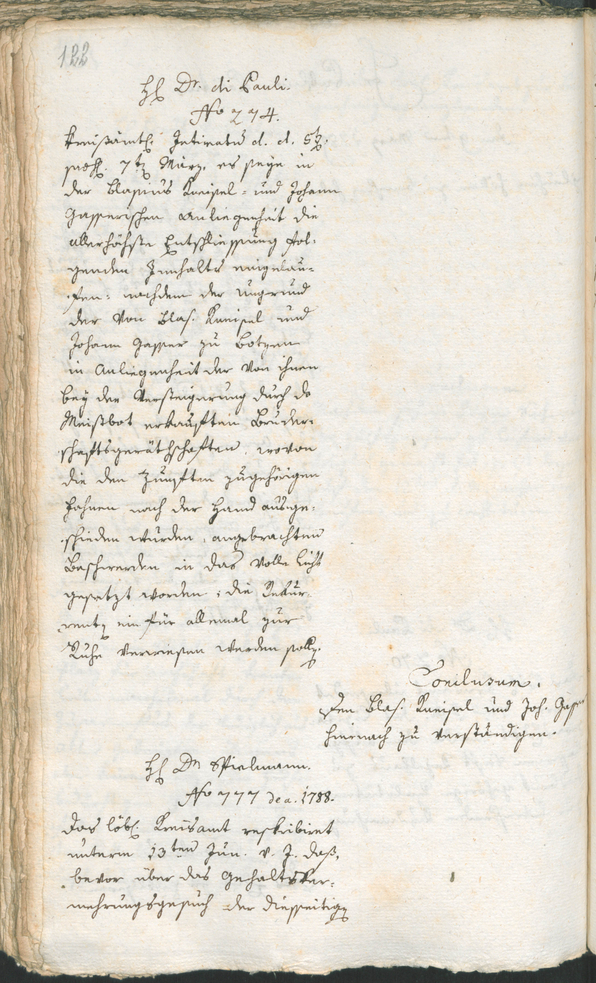 122
H. Dr. di Pauli.
No 274.
Kreißämtl. Intimatum d. d. 5t.
præs. 7t. März, es seye in
der Blasius Kneisel- und Johann
Gasserischen Anliegenheit die
allerhöchste Entschliessung fol-
genden Innhalts eingelau-
fen: nachdem der Ungrund
der von Blas. Kneisel und
Johann Gasser zu Botzen
in Anliegenheit der von ihnen
bey der Versteigerung durch
Meistbot erkauften Bruder-
schaftsgeräthschaften, wovon
die den Zunften zugehörigen
Fahnen nach der Hand ausge-
schieden wurden, angebrachten
Beschwerden in das volle Licht
gesetzt worden; die Rekur-
rentn ein für allemal zur
Ruhe verwiesen werden solln.
Conclusum.
Den Blas. Kneisel und Joh. Gasser
hiernach zu verständigen.
H. Dr. Spielmann.
No 777 de a. 1788.
Das löbl. Kreisamt reskribiret
unterm 13ten Jun. v. J. daß,
bevor über das Gehaltsver-
mehrungsgesuch der diesseitign